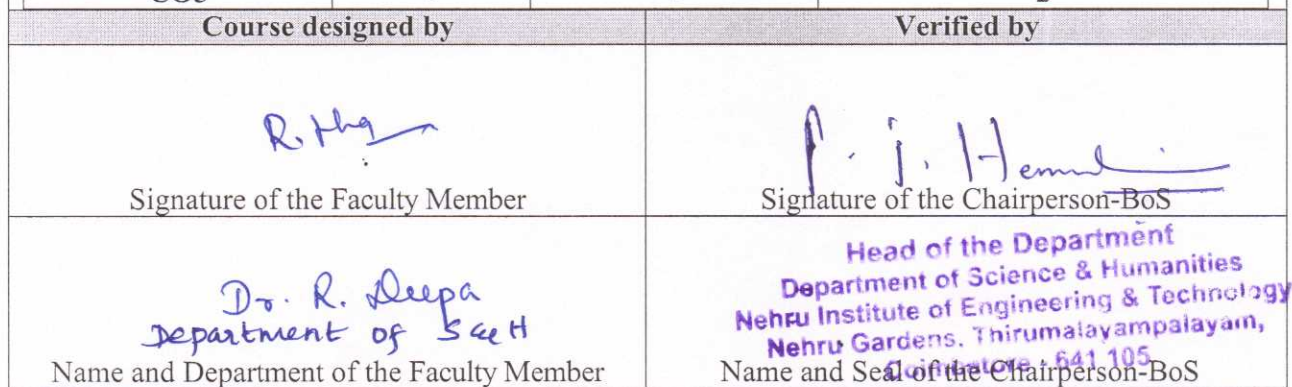 Course designed by
Verified by
R.
P. J. Hem
Signature of the Faculty Member
Signature of the Chairperson-BoS
Dr. R. Deepa
Department of S&H
Name and Department of the Faculty Member
Head of the Department
Department of Science & Humanities
Nehru Institute of Engineering & Technology
Nehru Gardens, Thirumalayampalayam,
Coimbatore - 641 105
Name and Seal of the Chairperson-BoS